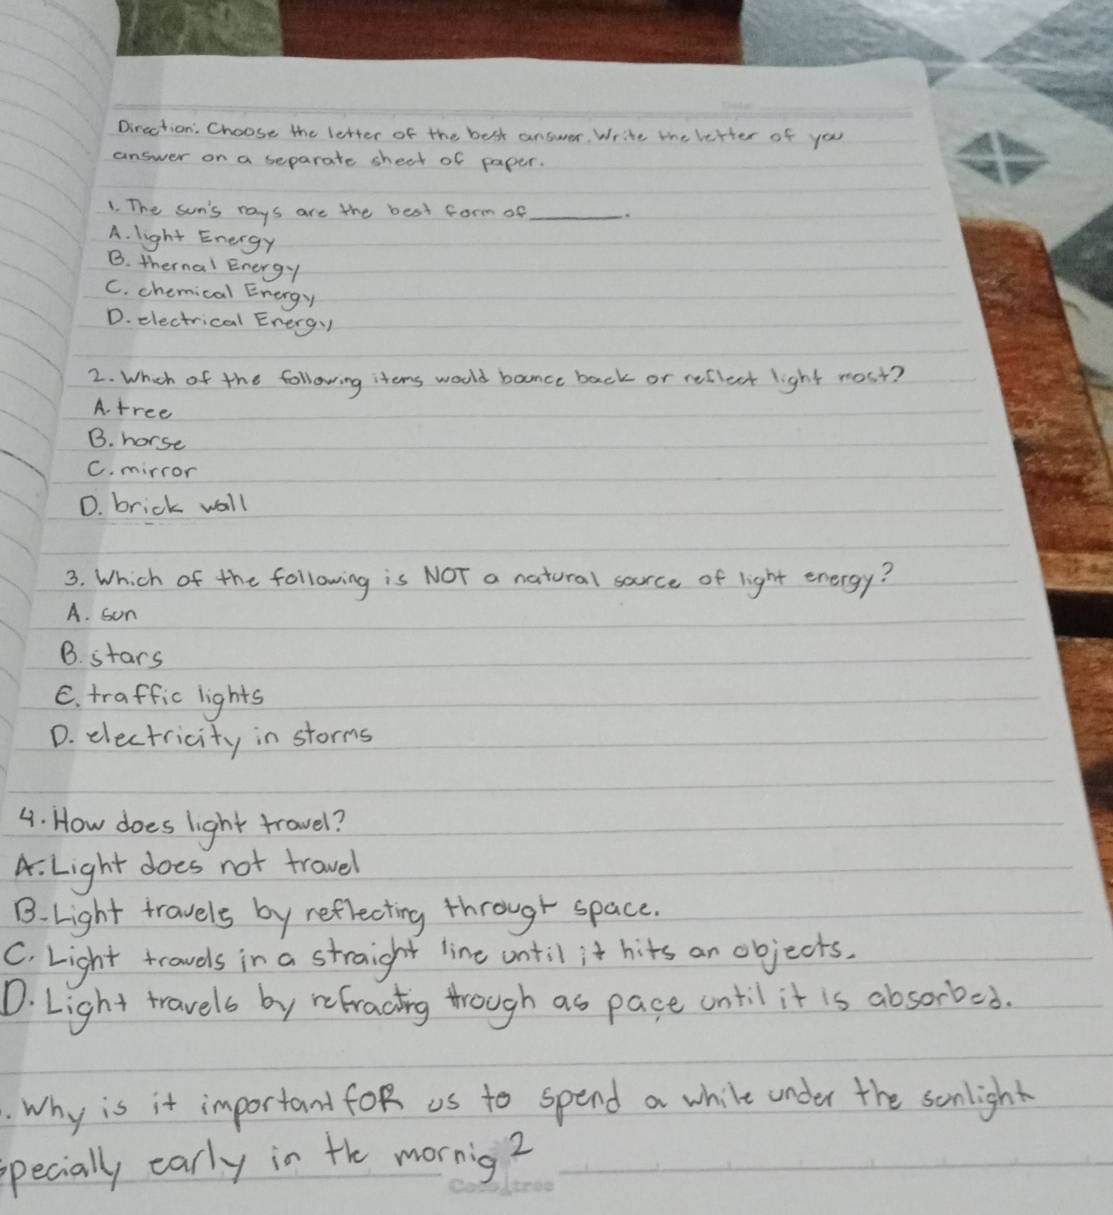 Direction: Choose the letter of the best answer. Write the letter of you
answer on a separate sheet of paper.
1. The sun's rays are the best form of ________.
A. light Energy
B. thernal Energy
C. chemical Energy
D. electrical Energy
2. Which of the following items would bounce back or reflect light most?
A. tree
B. horse
C. mirror
D. brick wall
3. Which of the following is NOT a natural source of light energy?
A. sun
B. stars
C. traffic lights
D. electricity in storms
4. How does light travel?
A. Light does not travel
B. Light travels by reflecting througt space.
C. Light travels in a straight line until it hits an objects.
D. Light travels by refracting trough as pace until it is absorbed.
. Why is it important foR us to spend a while under the sunlight
specially early in the mornig?